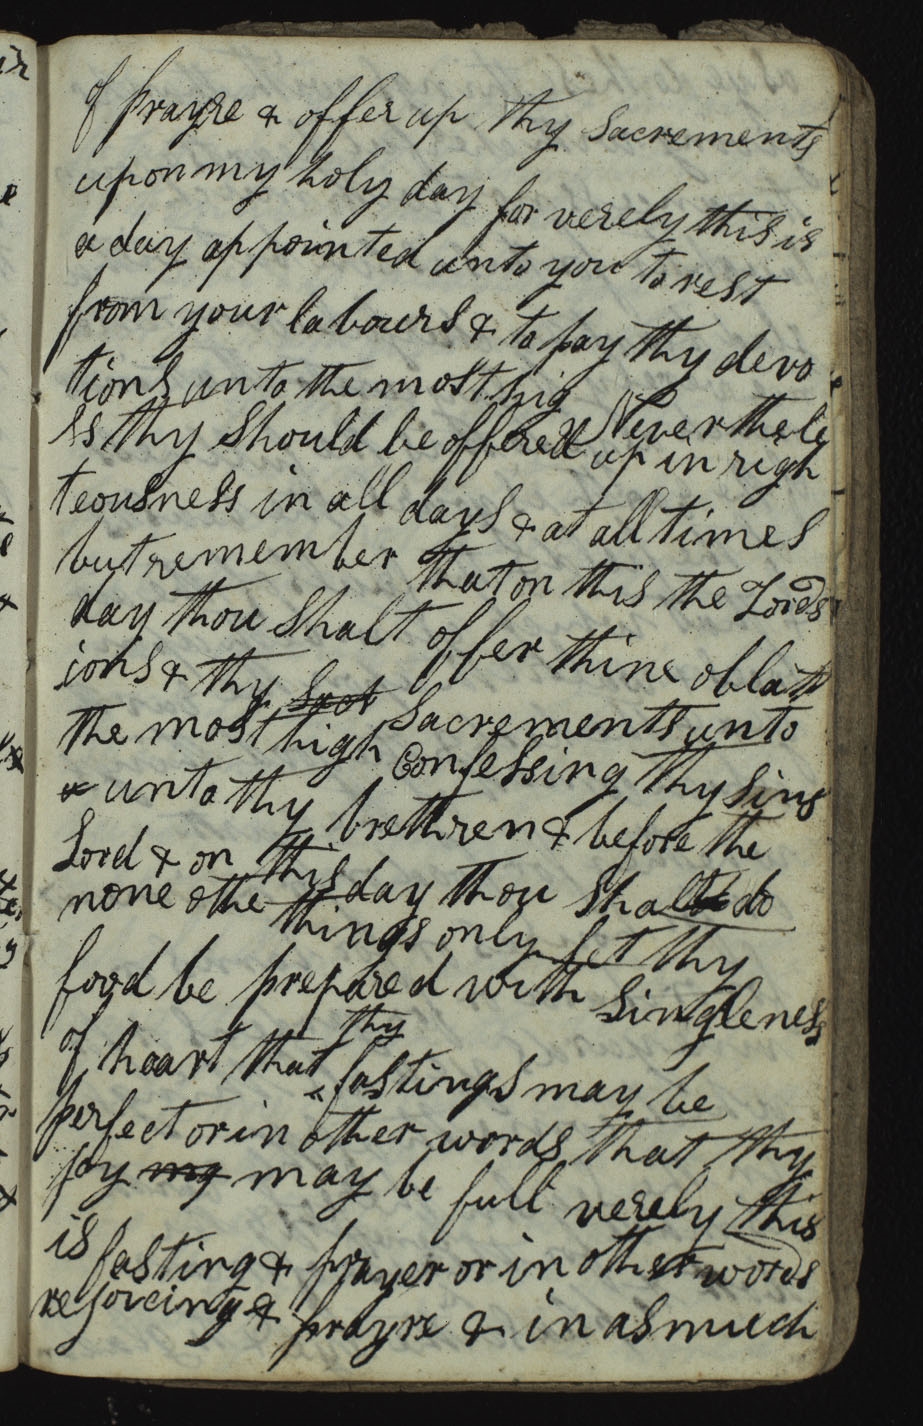 of prayre & offer up thy Sacrements
upon my holy day for verely this is
a day appointed unto you to rest
from your labours & to pay thy devo
tions unto the most hig
Neverthele
ss thy should be offered up in righ
teousness in all days & at all times
but remember that on this the Lords
day thou shalt offer thine oblat
ions & thy Sacrements unto
the most high Confessing thy sins
& unto thy brethren & before the
Lord & on this day thou shalt do
none othe things only let thy
food be prepared with singleness
of heart that thy fastings may be
perfect or in other words that thy
joy my may be full verely this
is fasting & prayer or in other words
rejoicing & prayre & in as much